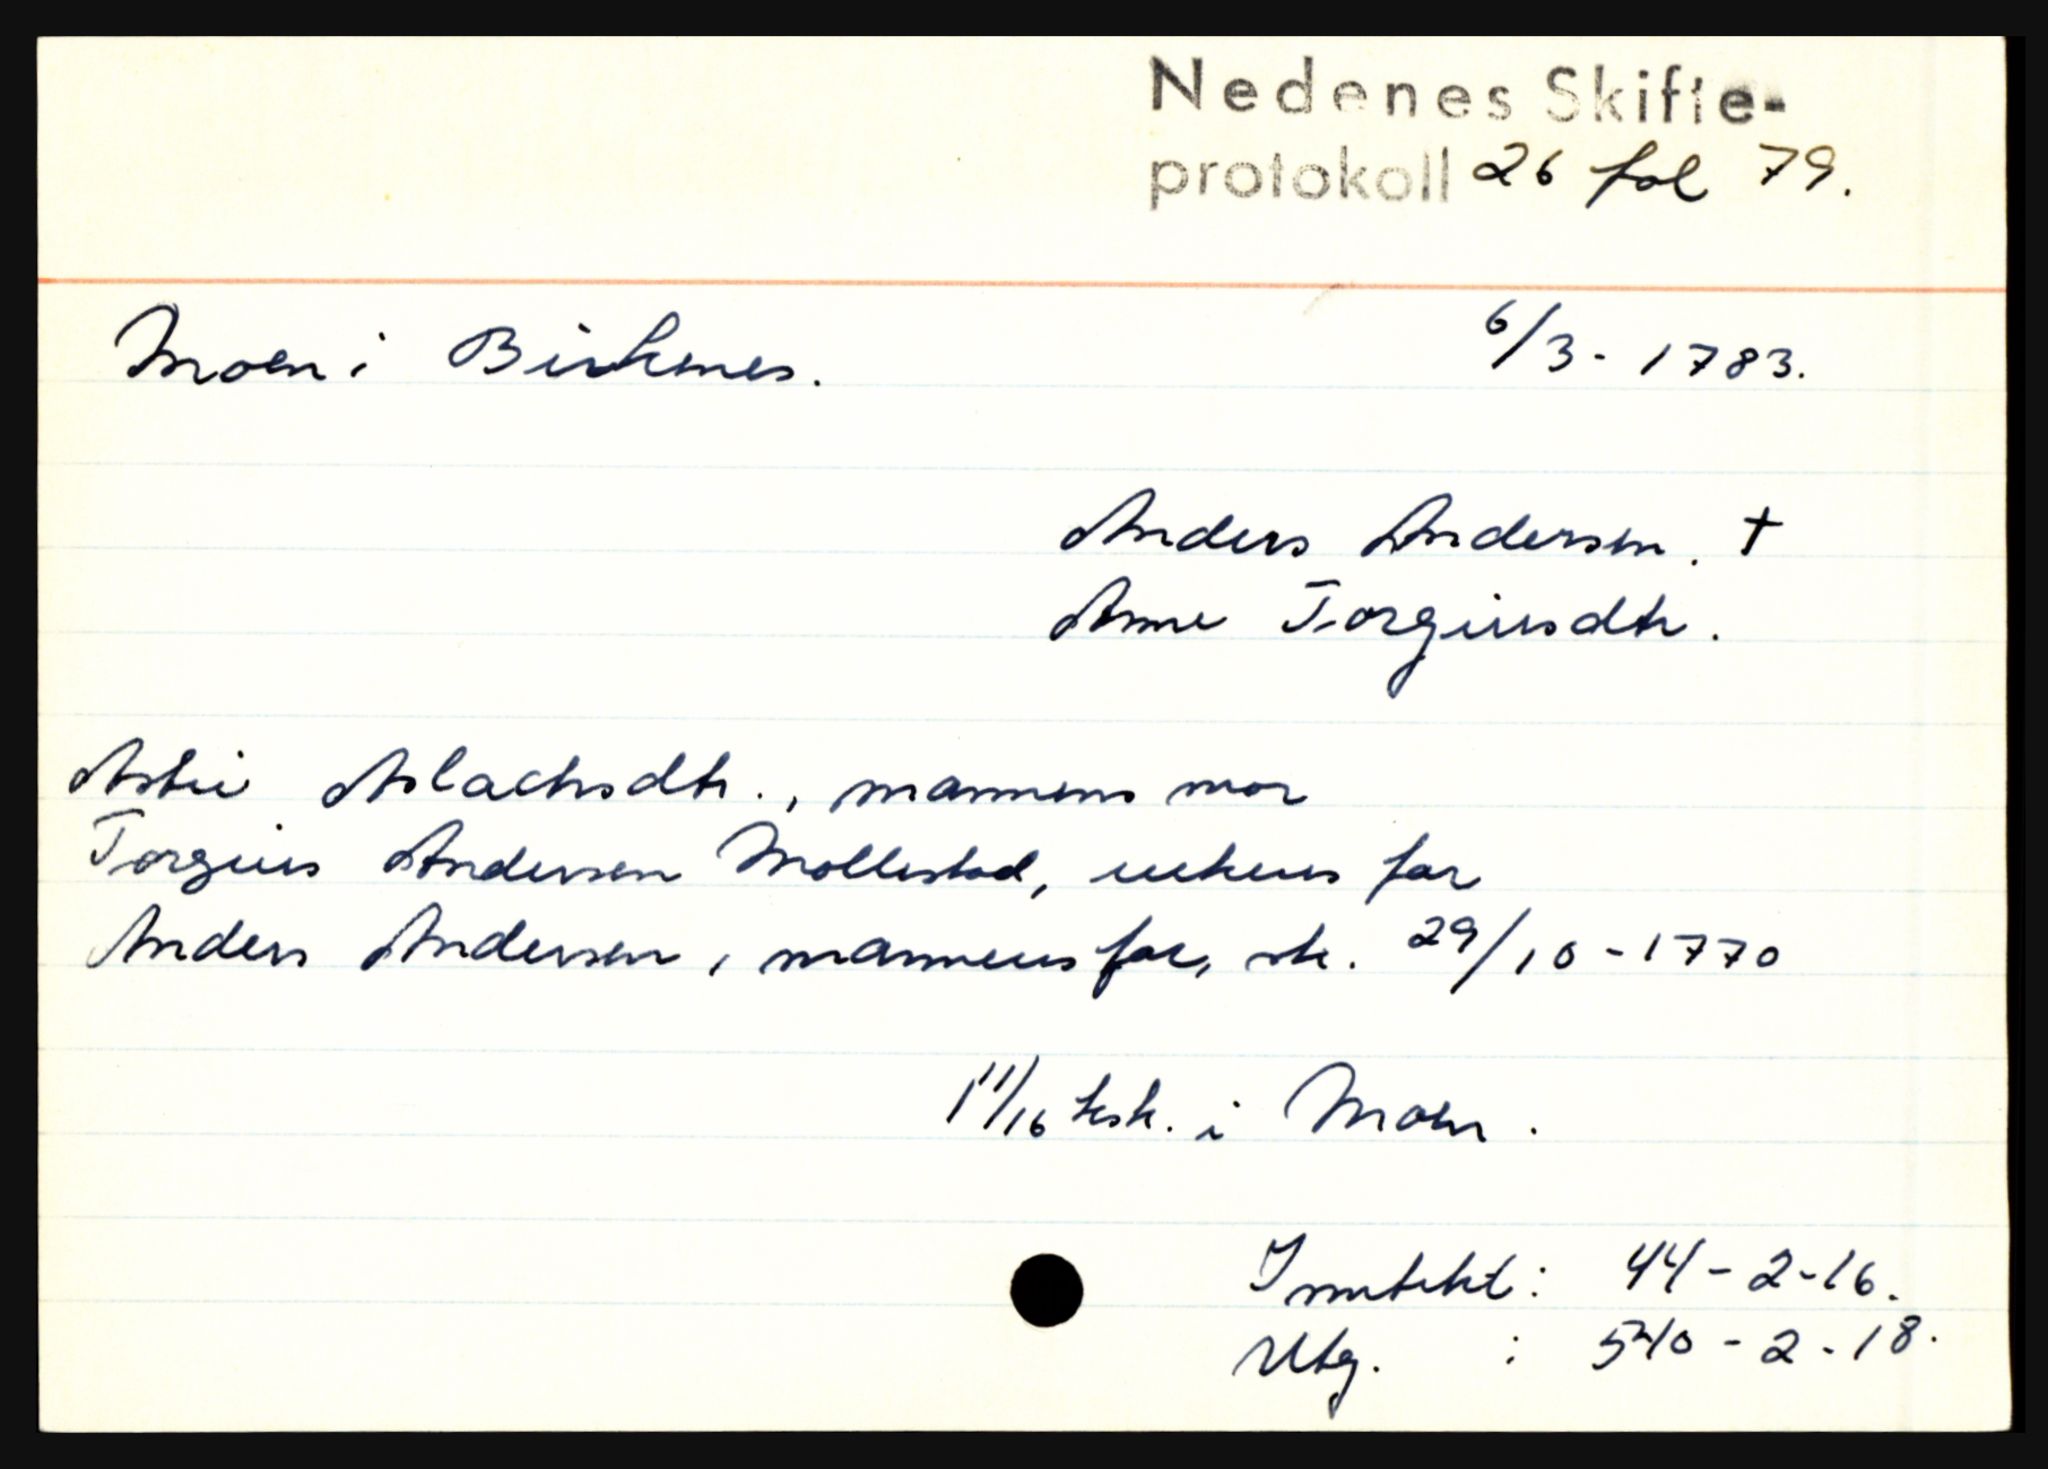 Nedenes Skifte-
protokoll 26 fol 79.
Moen i Birkenes. 6/3 - 1783.
Anders Andersen. †
Anne Torgiusdtr.
Asbiø Aslachsdtr., mannens mor
Torgius Andersen Mollestad, enkens far
Anders Andersen, mannens far, sk. 29/10 - 1770
1 11/16 ksk. i Moen.
Inntekt: 44 - 2 - 16.
Utg. : 540 - 2 - 18.